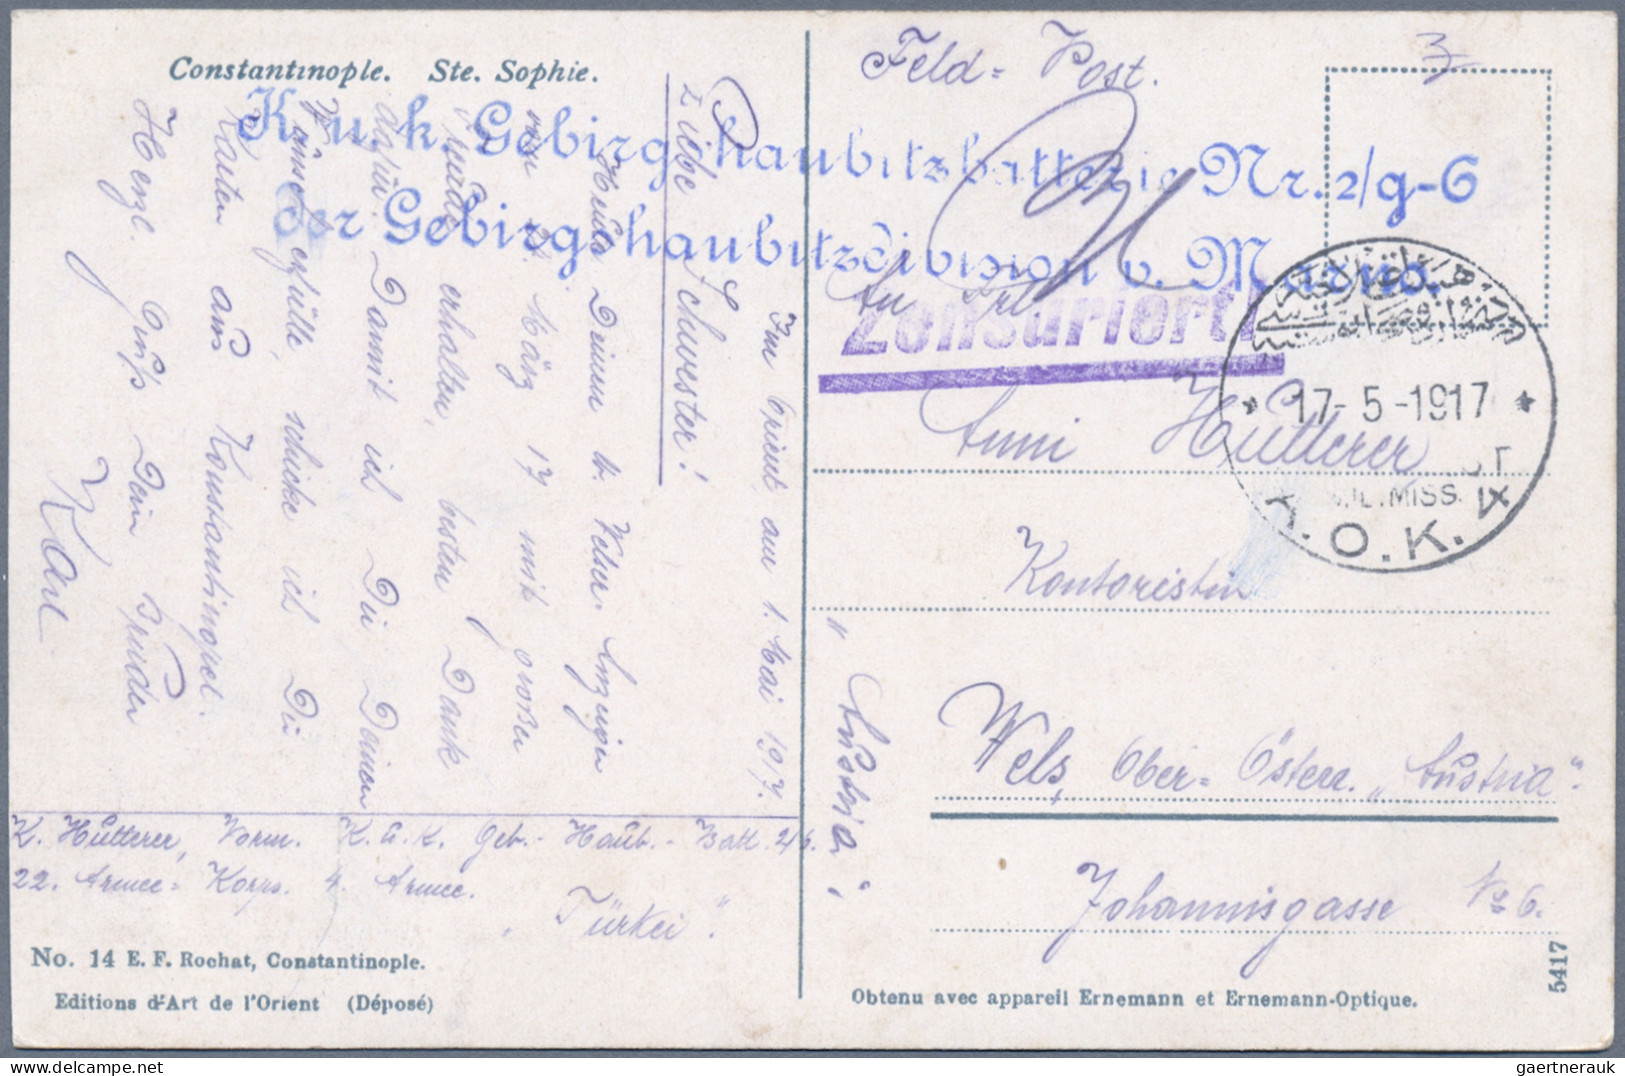 Constantinople. Ste. Sophie.
K.u.k. Gebirgshaubitzbatterie Nr. 2/g-6
der Gebirgshaubitzdivision v. Marno.
Im Orient am 1. Mai 1917.
Liebe Schwester!
Heute Deinen u. Welser-Anzeiger
vom 24. März 17 mit großer
Freude erhalten, besten Dank
dafür. Damit ich Dir Deinen
Wunsch erfülle, schicke ich Dir
Karten aus Konstantinopel.
Herzl. Gruß Dein Bruder
Karl
K. Hütterer, Vorm. K.u.K. Geb.-Haub.-Batt. 2/6.
22. Armee-Korps. 4. Armee.
"Türkei".
No. 14 E. F. Rochat, Constantinople.
Editions d'Art de l'Orient (Déposé)
Feld-Post.
3
An Frl.
Zensuriert!
17-5-1917
MIL.MISS.
K.O.K.
Anni Hütterer
Kontoristin
Wels, Ober-Österr. „Austria".
Johannisgasse No 6.
"Austria"
Obtenu avec appareil Ernemann et Ernemann-Optique.
5417
gaertnerauk